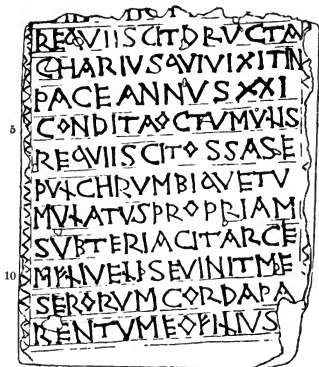 REQVIISCITDRVCTA
CHARIVSQVIVIXITIN
PACEANNVSXXI
5 CONDITAOCTVMVLIS
REQVIISCITOSSASE
PVLCHRVMBIQVETV
MVLATVSPROPRIAM
SVBTERIACITARCE
10 MFLIVELISEVINITME
SERORVMCORDAPA
RENTVMEOFILIVS